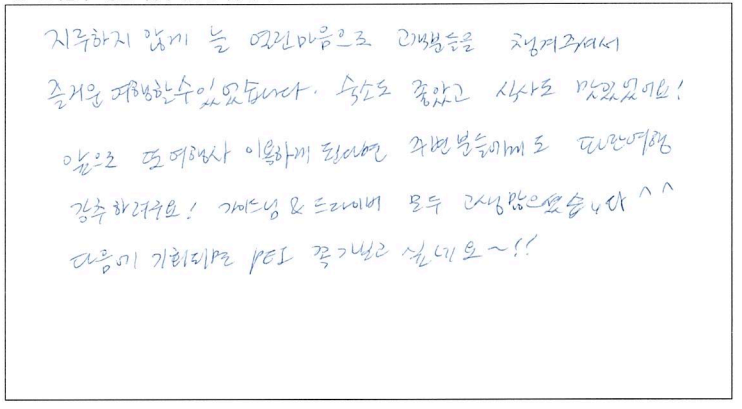 지루하지 않게 늘 열린마음으로 고객분들을 챙겨주셔서
즐거운 여행할수있었습니다. 숙소도 좋았고 식사도 맛있었어요!
앞으로 또 여행사 이용하게 된다면 주변분들에게도 파란여행
강추하려구요! 가이드님 & 드라이버 모두 고생많으셨습니다 ^^
다음에 기회되면 PEI 꼭가보고 싶네요~!!